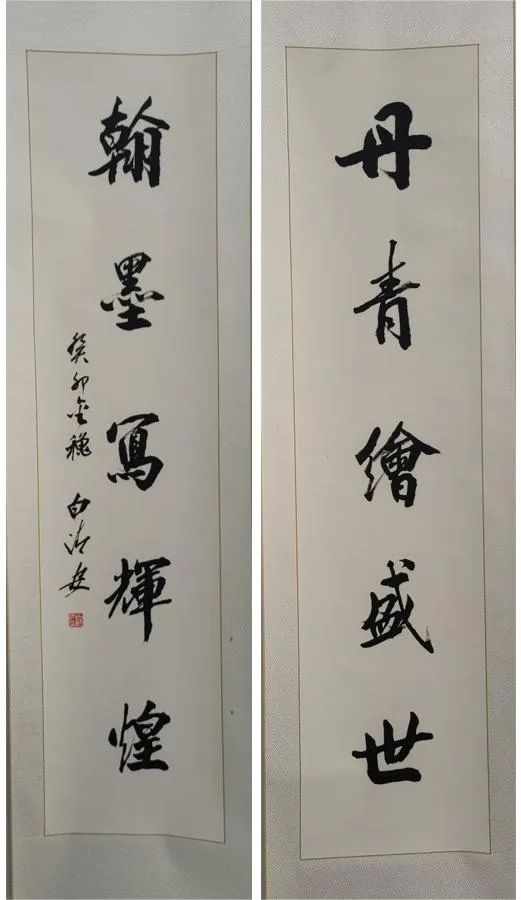 丹青繪盛世
翰墨寫輝煌
癸卯金秋 白清安